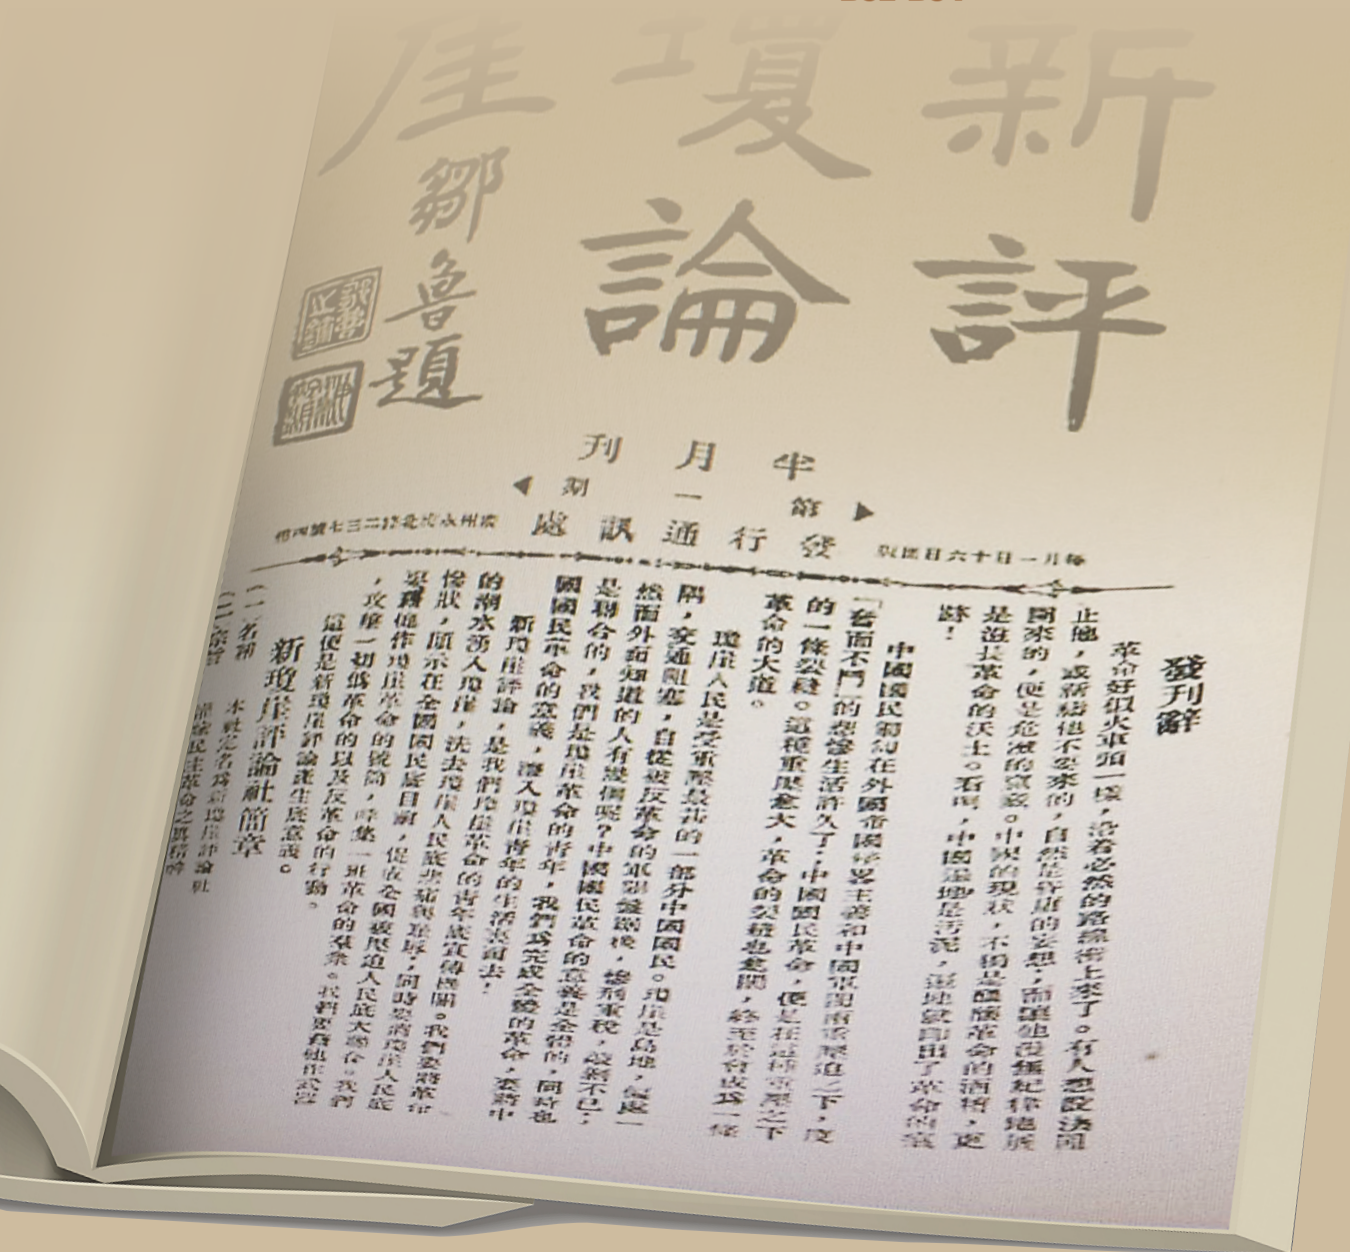 新瓊崖
評論
鄒魯題
半月刊
第一期
發行通訊處
每月一日十六日出版
廣州永漢北路二三七號四樓
發刊辭
革命好似火車頭一樣，沿着必然的路線衝上來了。有人想設法
止他，或祈禱他不要來的，自然是昏庸的妄想，而讓他 紀律地展
開來的，便是危險的 。中國的現狀，不獨是醞釀革命的酒精，更
是滋長革命的沃土。看啊，中國遍地是污泥，遍地 印出了革命的痕
跡！
中國國民匍匐在外國帝國 主義和中國軍閥兩重壓迫之下，度
的悲慘生活許久了，中國國民革命，便是在這種重壓之下
的一條裂縫。這種重壓愈大，革命的裂縫也愈闊，終至於會成為一條
革命的大道。
瓊崖人民是受重壓最苦的一部分中國國民。瓊崖是島地，偏處一
隅，交通阻塞，自從被反革命的軍閥盤踞後，慘刑重稅， 剝不已；
然而外面知道的人有幾個呢？中國國民革命的意義是全體的，同時也
是聯合的，我們是瓊崖革命的青年，我們為完成全體的革命，要將中
國國民革命的意義，灌入瓊崖青年的生活裏面去！
新瓊崖評論，是我們瓊崖革命的青年底宣傳機關。我們要將革命
的潮水湧入瓊崖，洗去瓊崖人民底悲痛與耻辱，同時要將瓊崖人民底
慘狀，顯示在全國國民底目前，促成全國被壓迫人民底大聯合。我們
要 作瓊崖革命的號筒， 集一班革命的羣衆。我們要 他作武器
，攻擊一切偽革命的以及反革命的行動。
這便是新瓊崖評論產生底意義。
新瓊崖評論社簡章
（一）名稱　本社定名為新瓊崖評論社
（二）宗旨　 民主革命之真精神